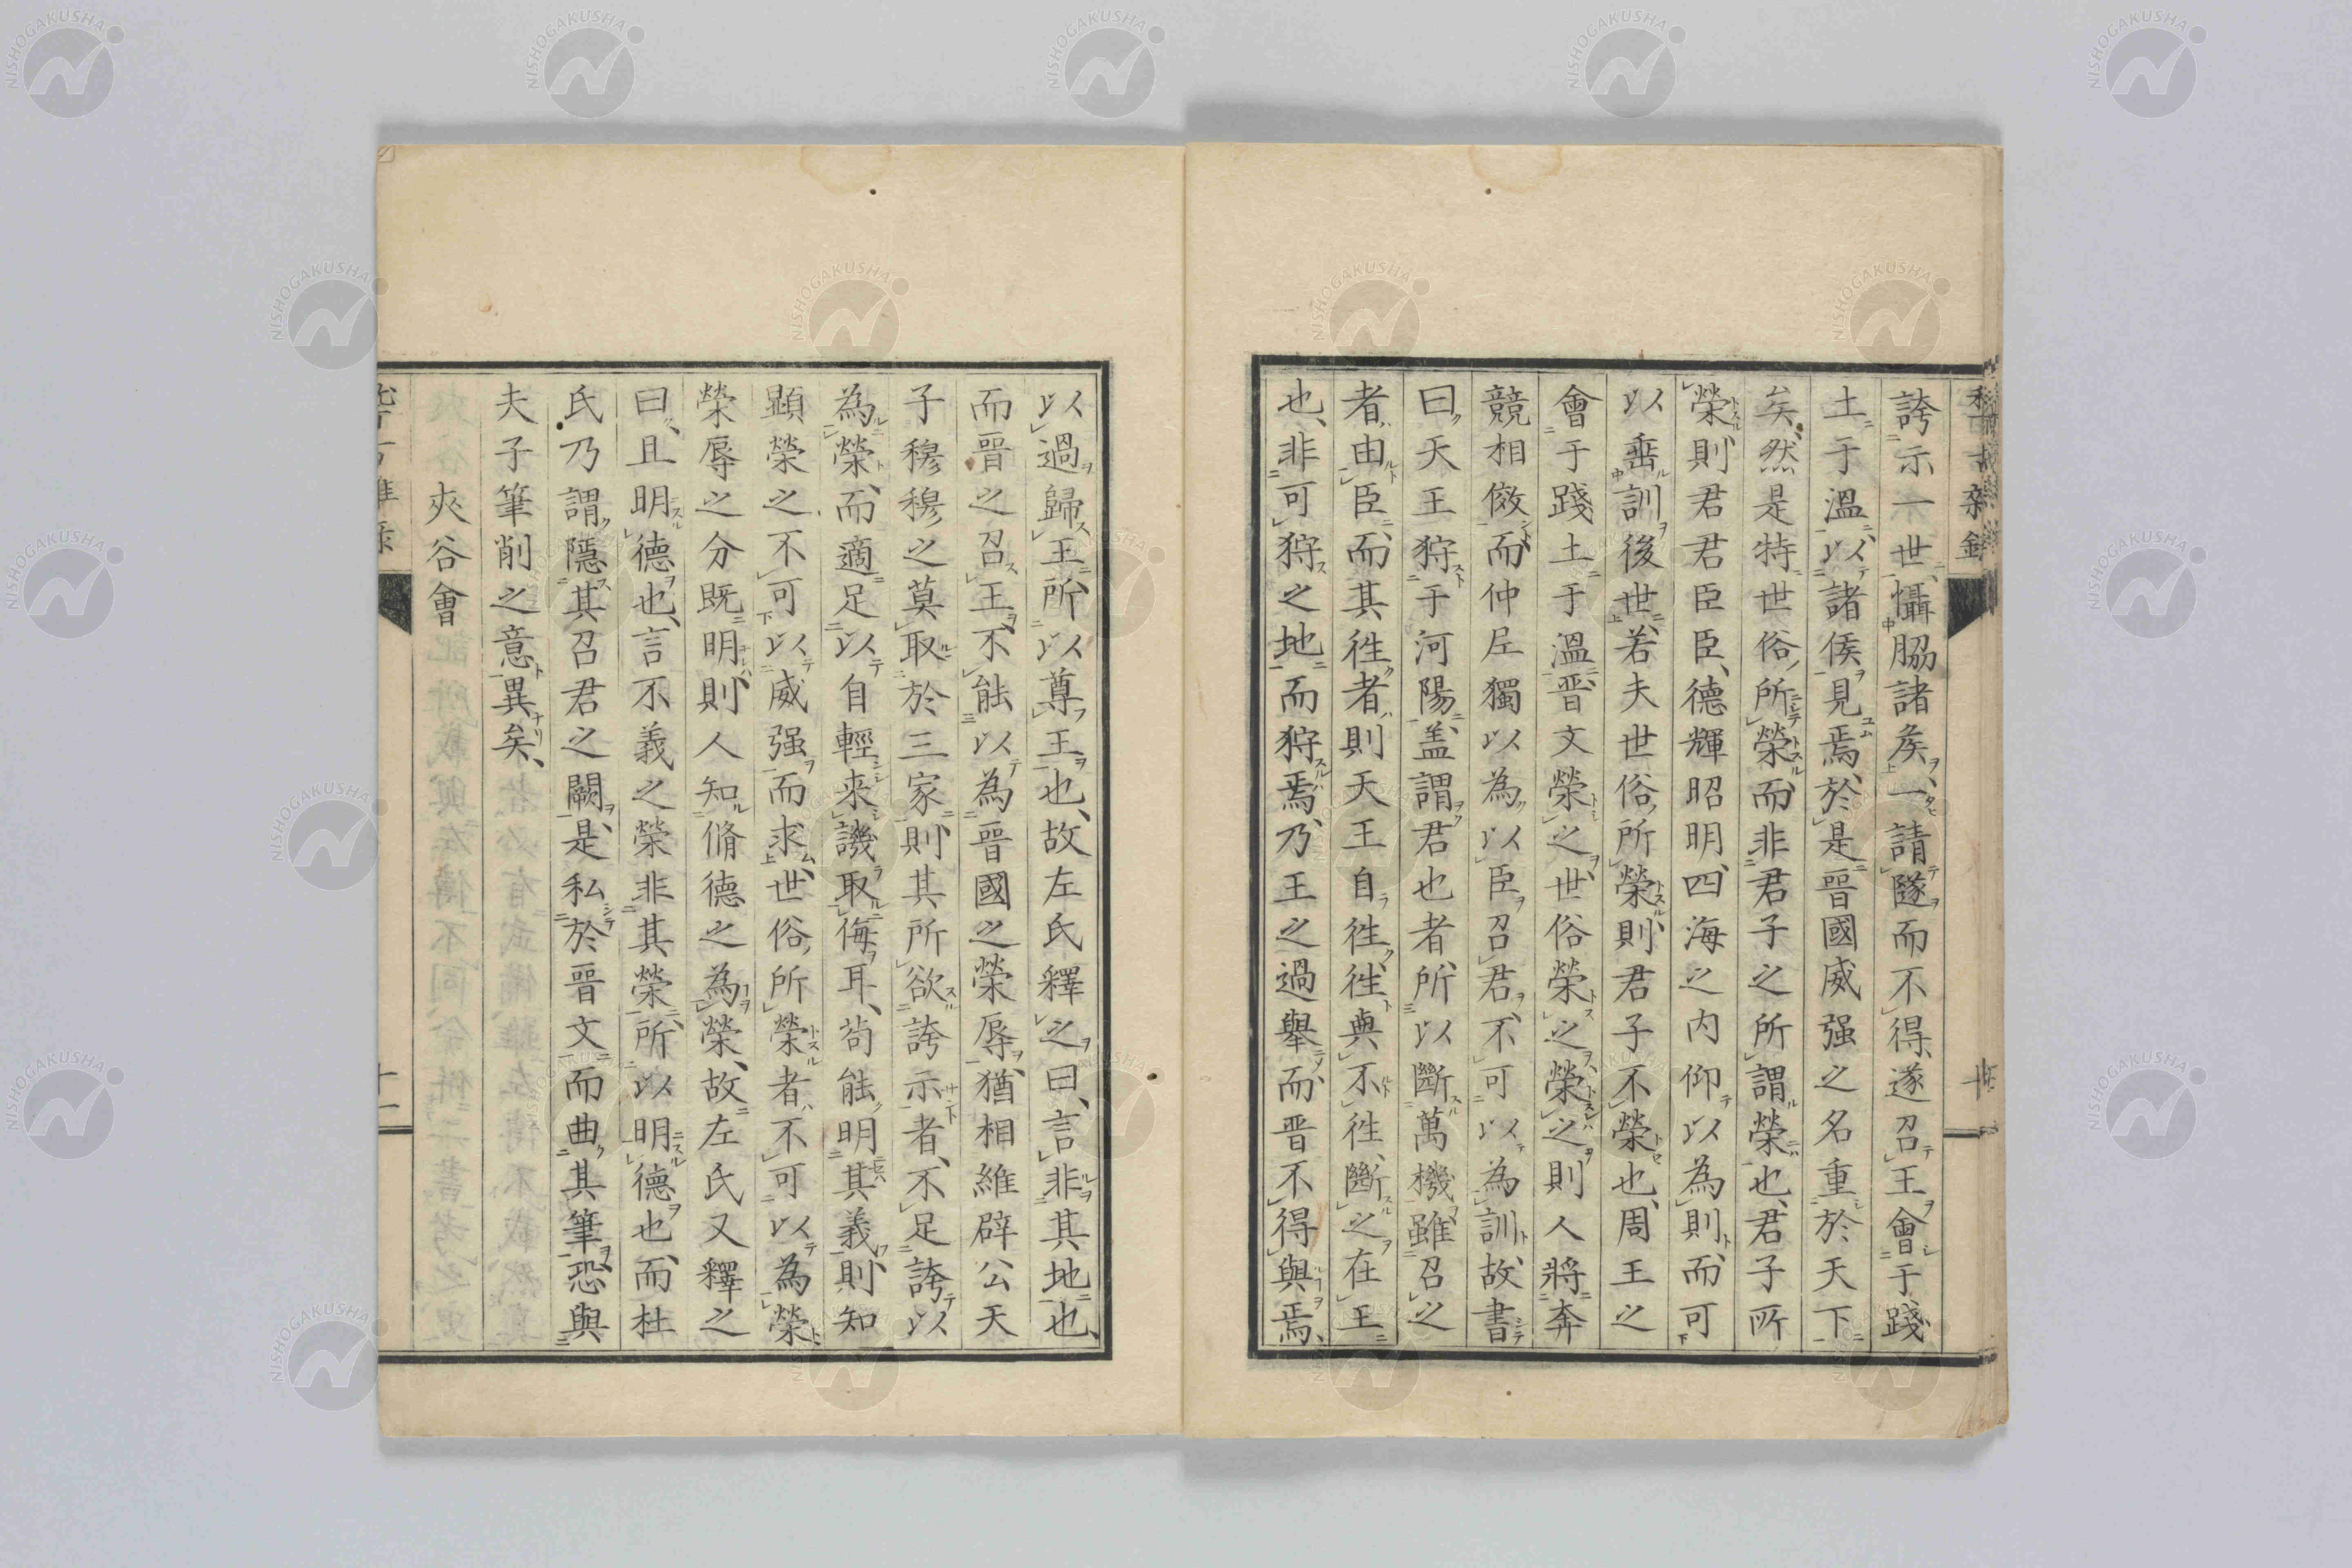 誇示一世、懾脇諸矦、一請隧而不得、遂召王會于踐
土于溫、以諸侯見焉、於是晉國威强之名重於天下
矣、然是特世俗所榮而非君子之所謂榮也、君子所
榮則君君臣臣、德輝昭明、四海之内仰以為則、而可
以垂訓後世、若夫世俗所榮則君子不榮也、周王之
會于踐土于溫、晋文榮之、世俗榮之、榮之則人將奔
競相傚而仲尼獨以為以臣召君、不可以為訓、故書
曰天王狩于河陽、盖謂君也者、所以斷萬機雖召之
者由臣、而其徃者、則天王自徃、徃與不徃、斷之在王
也、非可狩之地而狩焉、乃王之過舉而、晋不得與焉、
以過歸王所以尊王也、故左氏釋之曰、言非其地也、
而晉之召王、不能以為晉國之榮辱、猶相維辟公天
子穆穆之莫取於三家則其所欲誇示者、不足誇以
為榮、而適足以自輕来譏取侮耳、茍能明其義則知
顕榮之不可以威强而求、世俗所榮者不可以為榮
榮辱之分既明則人知脩德之為榮、故左氏又釋之
曰、且明德也、言不義之榮非其榮、所以明德也、而杜
氏乃謂隱其召君之闕、是私於晉文而曲其筆恐與
夫子筆削之意異矣、
夾谷會